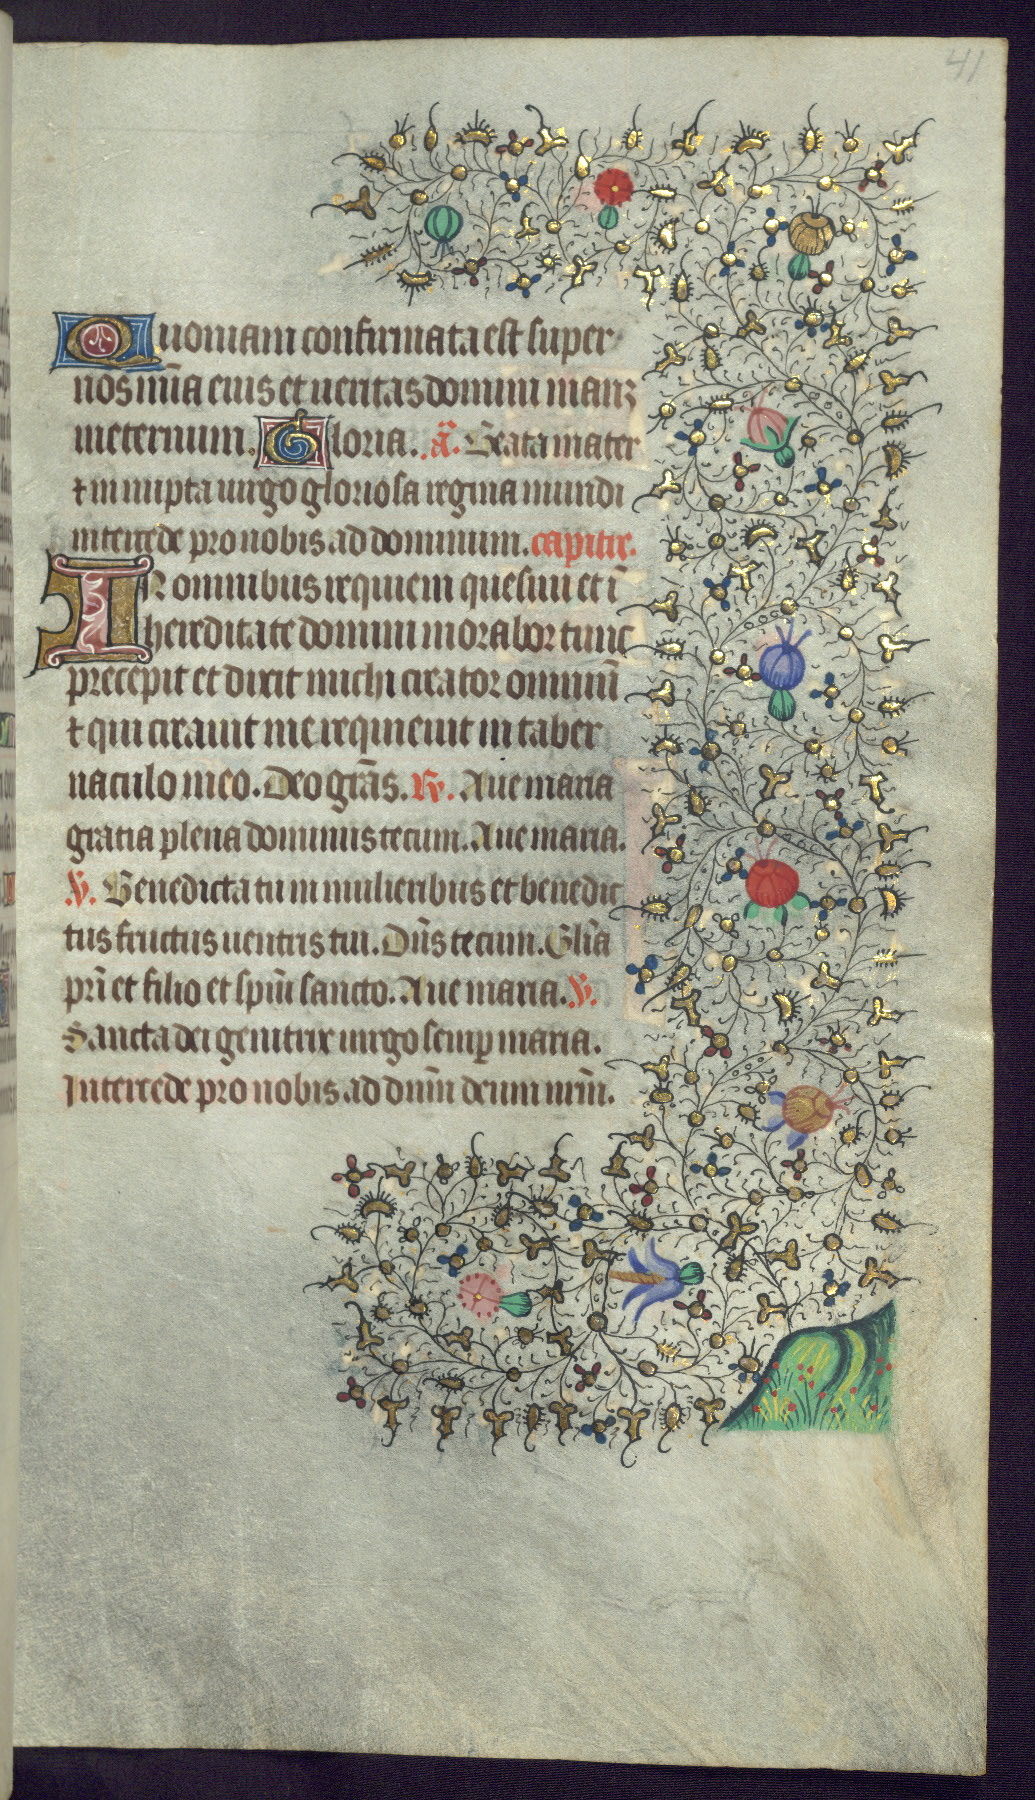 41
Quoniam confirmata est super
nos mīa eius et ueritas domini manꝫ
ineternum. Gloria. .ā. Beata mater
⁊ innupta uirgo gloriosa regina mundi
intercede pro nobis ad dominum. capitłe.
IN omnibus requiem quesiui et ī
hereditate domini morabor tunc
precepit et dixit michi creator omniū
⁊ qui creauit me requieuit in taber
naculo meo. Deo grās. R̷. Aue maria
gratia plena dominus tecum. Aue maria.
V̷. Benedicta tu in mulieribus et benedic
tus fructus uentris tui. Dn̄s tecum. Glīa
pr̄i et filio et spūi sancto. Aue maria. V̷.
Sancta dei genitrix uirgo semꝑ maria.
Intercede pro nobis ad dnm̄ deum nrm̄.